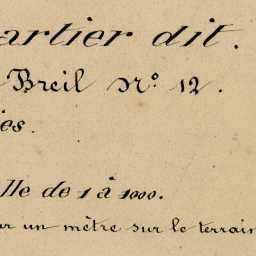 artier dit.
Breil N° 12.
es.
lle de 1 à 1000.
r un mètre sur le terrain